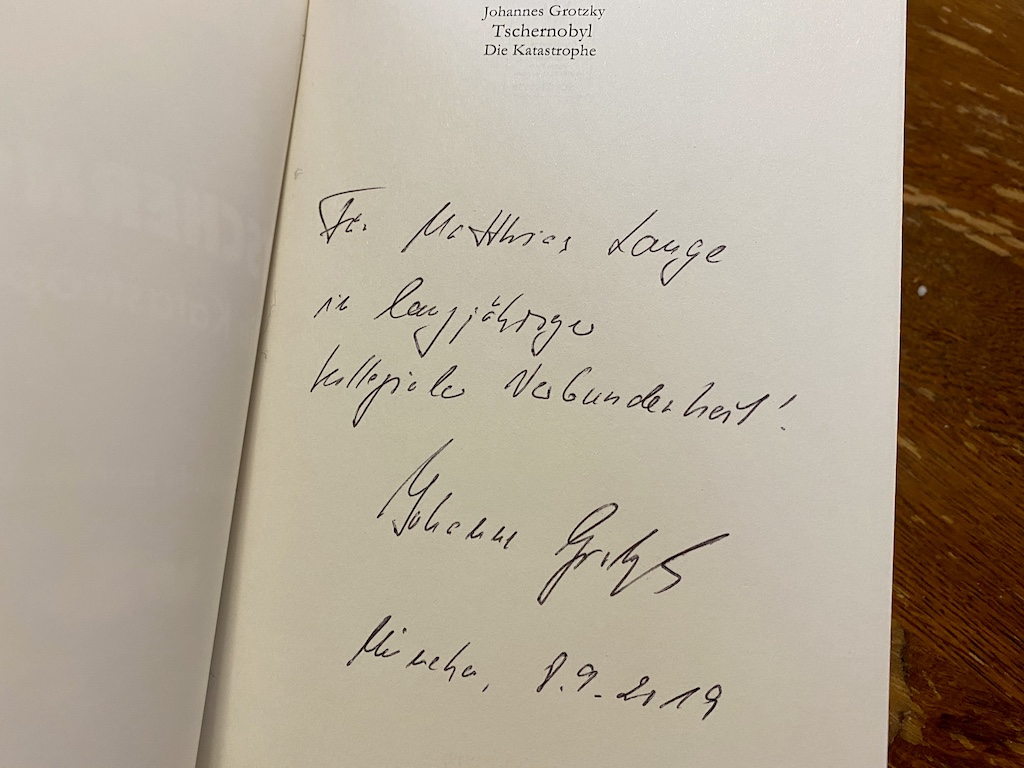 Johannes Grotzky
Tschernobyl
Die Katastrophe
Für Matthias Lange
in langjähriger
kollegialer Verbundenheit!
Johannes Grotzky
München, 8.9.2019